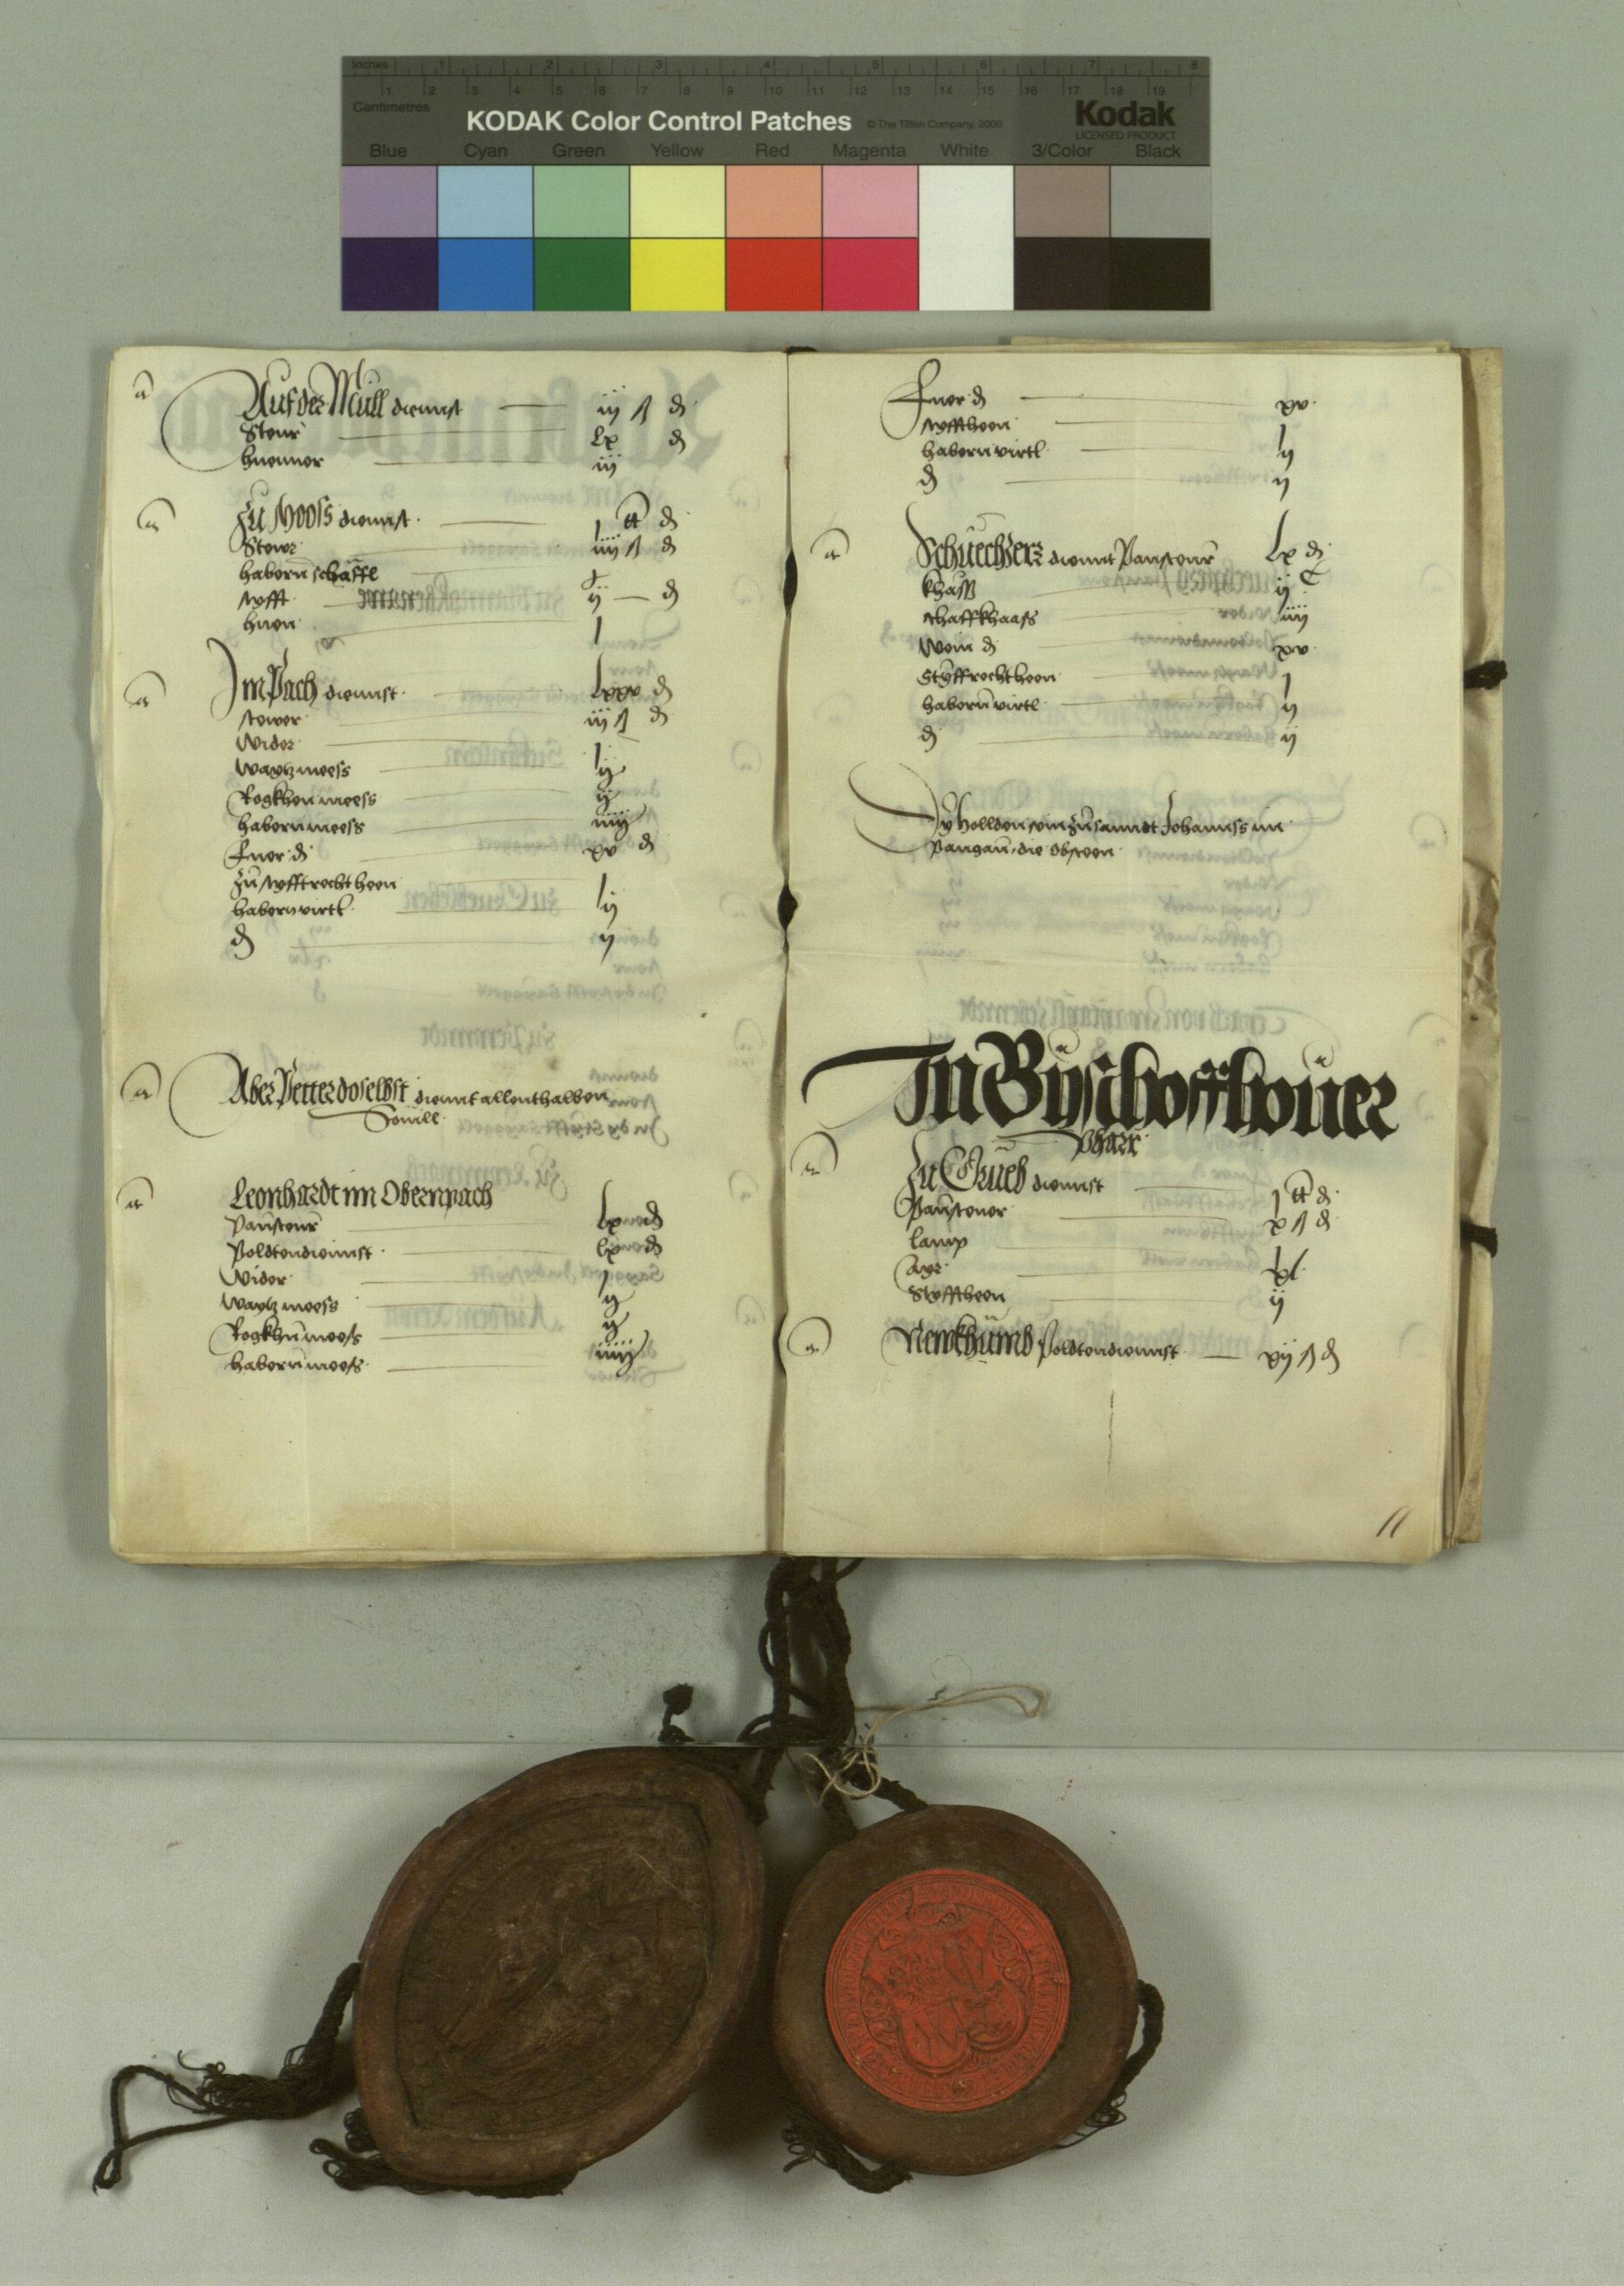 Inches 1 2 3 4 5 6 7 8
1 2 3 4 5 6 7 8 9 10 11 12 13 14 15 16 17 18 19
Centimetres
KODAK Color Control Patches © The Tiffen Company, 2000 Kodak
LICENSED PRODUCT
Blue Cyan Green Yellow Red Magenta White 3/Color Black
Auf der Müll diennst iij ß d
Steur lx d
huenner iij
Zu Moos diennst j tt d
Stewr iiij ß d
habern schäffl
styfft ij d
huen j
Im Pach diennst lxxv d
stewer iij ß d
Wider j
Waytz meess ij
Rogkhen meess ij
habern meess iiij
Fuer d xv d
Zu styfftrecht heen j
habern virtl ij
d ij
Aber Petter doselbst diennt allenthalben
Souill
Leonhardt im Obernpach
Pausteur lx d
Voldtendiennst lx d
Wider j
Waytz meess ij
Rogkhn meess ij
habern meess iiij
Fuer d xv
styfft heen j
habern virtl ij
d ij
Schuechzerz diennt Pausteur lx d
khäss ij C
schaffkhaass iiij
Wein d xv
Styffrecht heen j
habern virtl ij
d ij
Dy holden vom zu sanndt Johanns im
Pangau, die obsteen
In Byschoffhouer
Pharr
Zu Grueb diennst j tt d
Pausteuer x ß d
lamp j
Ayr xl
Styfftheen ij
Newkhumb Voldtendiennst xij ß d
11